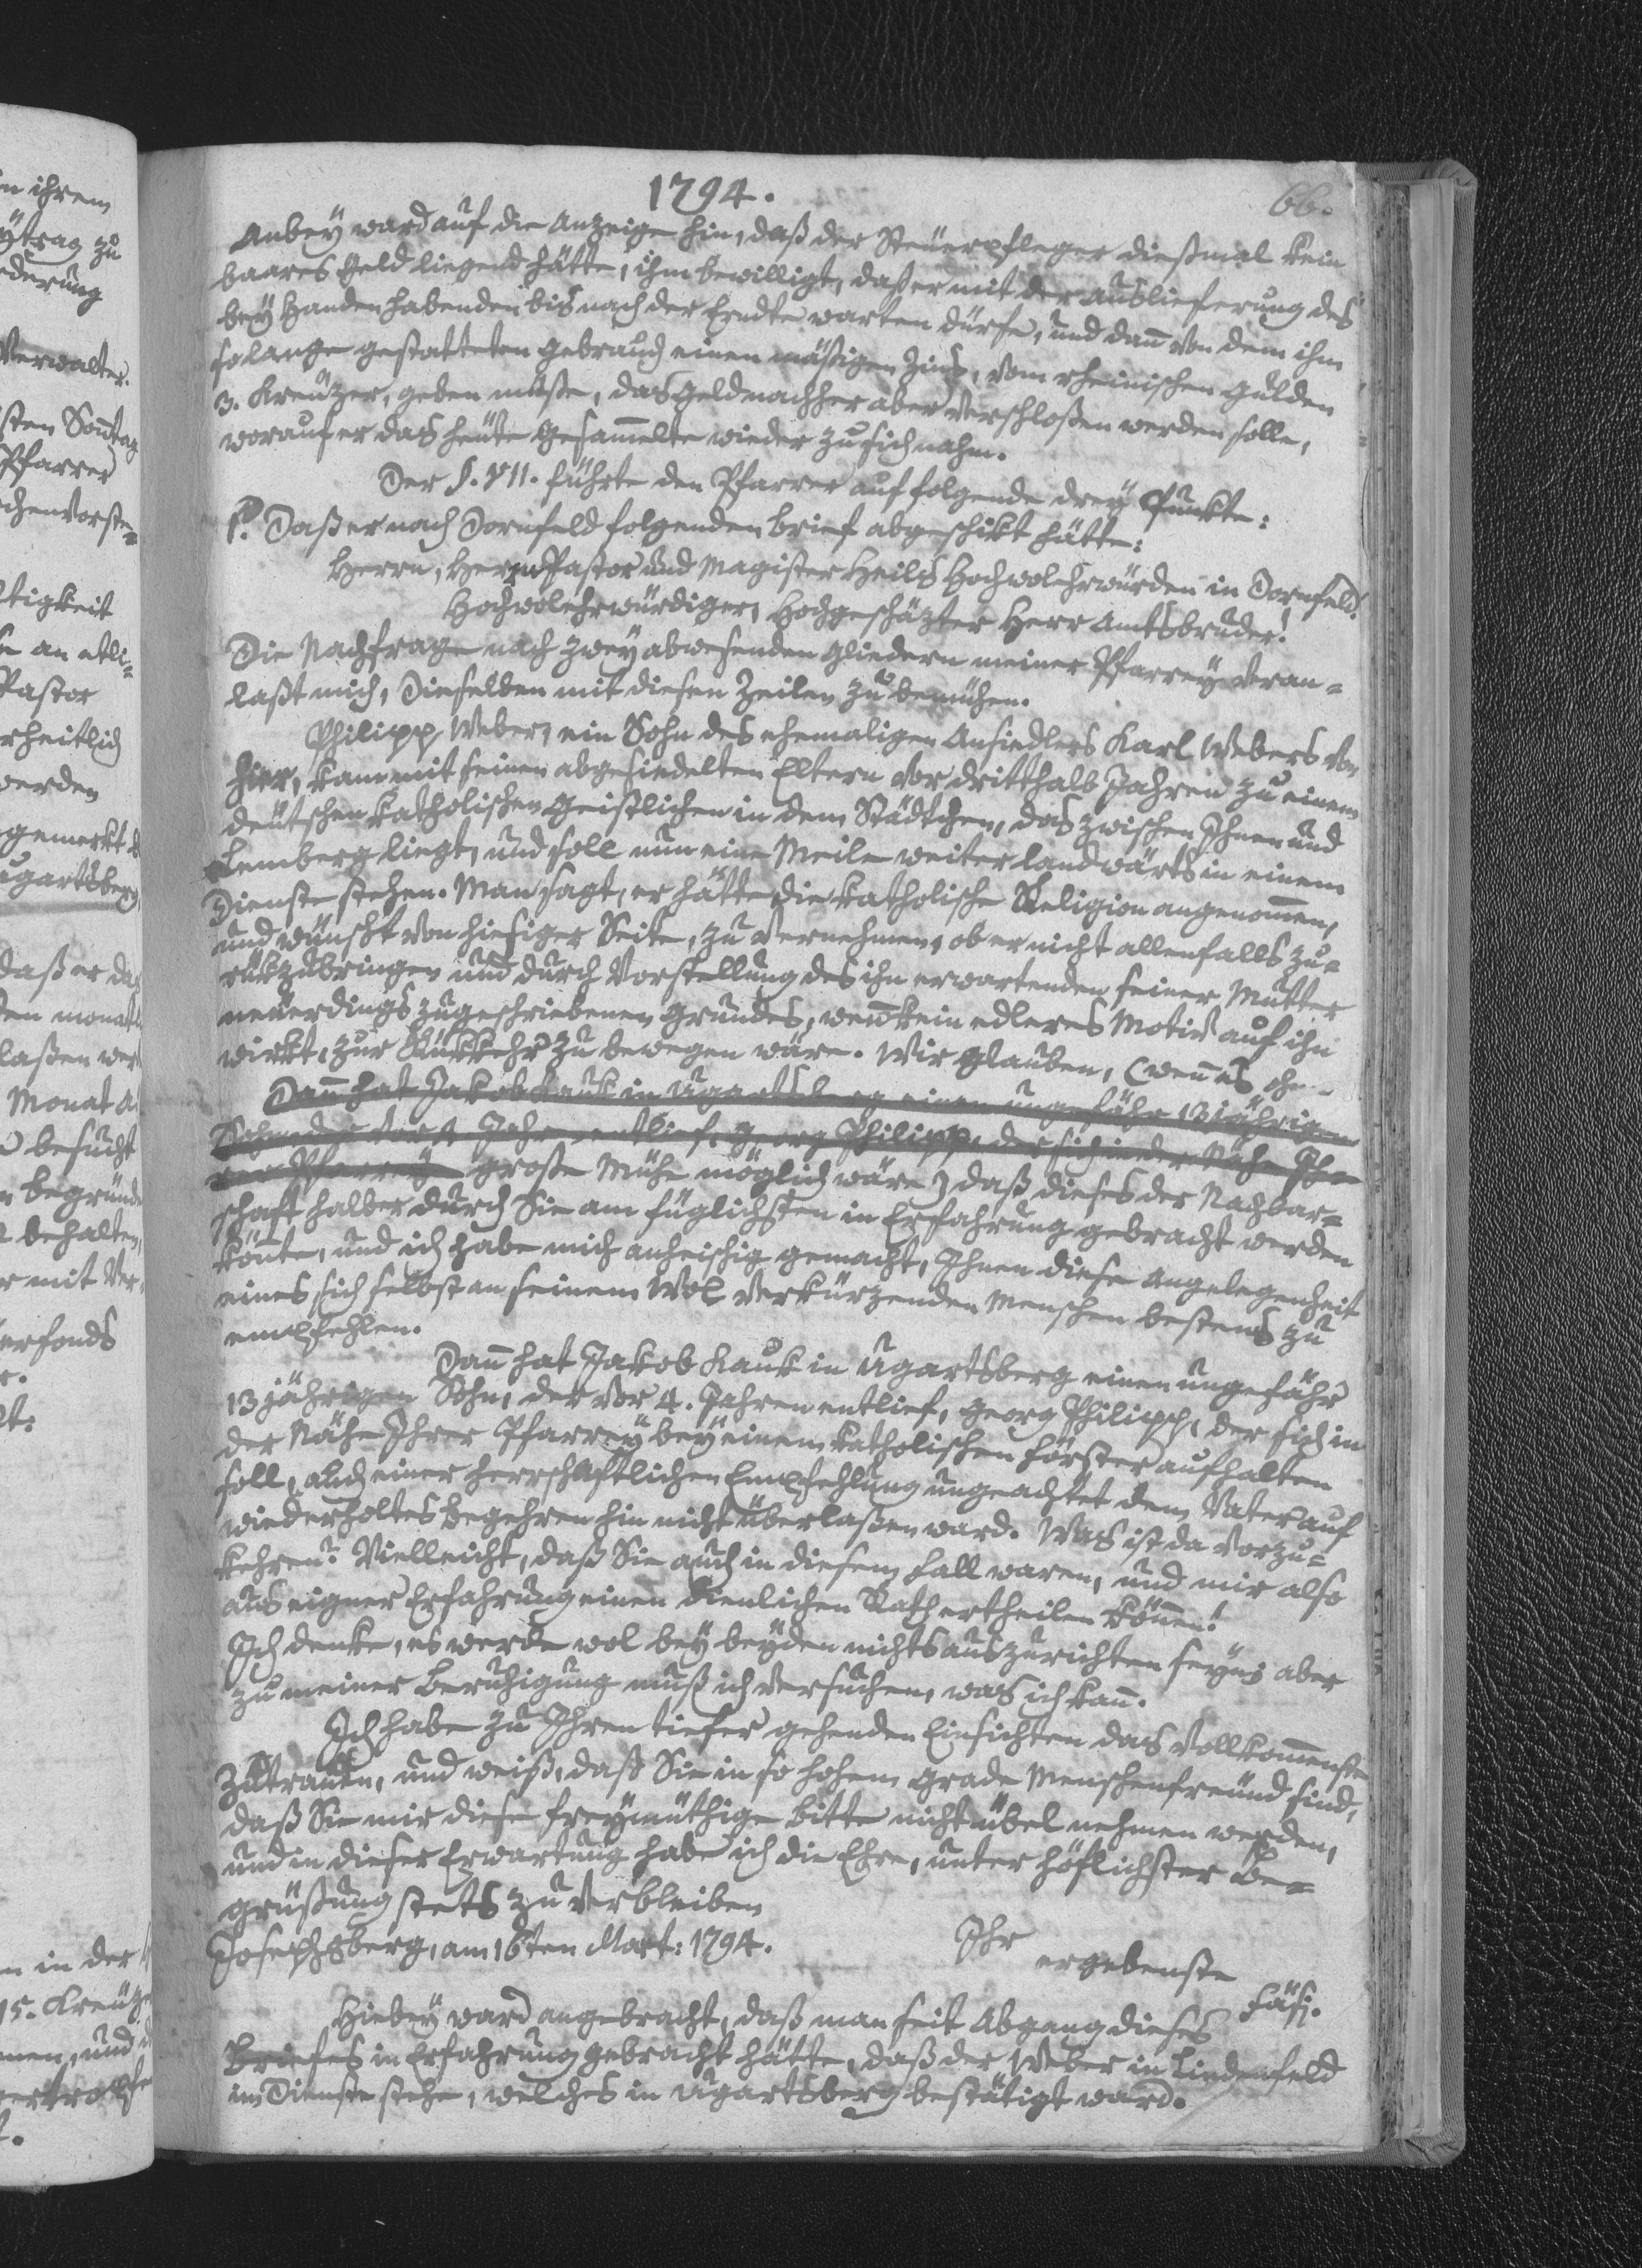 1794.
66.
Anbey ward auf die Anzeige hin, daß der Steuerpfleger dießmal kein
baares Geld liegend hätte, ihm bewilligt, daß er mit der Auslieferung des
bey Handen habenden bis nach der Erndte warten dürfe, und dañ von dem ihm
solange gestatteten Gebrauch einen mäßigen Zins, vom rheinischen Gulden
3. Kreuzer, geben müßte, das Geld nachher aber verschloßen werden solle,
worauf er das heute Gesam̄elte wieder zu sich nahm.
Der §. VII. führte den Pfarrer auf folgende drey Punkte:
1º. Daß er nach Dornfeld folgenden Brief abgeschikt hätte:
Herrn, Herrn Pastor und Magister Heils Hochwolehrwürden in Dornfeld.
Hochwolehrwürdiger, Hochgeschäzter Herr Amtsbruder!
Die Nachfrage nach zwey abwesenden Gliedern meiner Pfarrey veran=
laßt mich, Dieselben mit diesen Zeilen zu bemühen.
Philipp Weber, ein Sohn des ehemaligen Ansiedlers Karl Webers von
hier, kam mit seinen abgesiedelten Eltern vor dritthalb Jahren zu einem
deutschen katholischen Geistlichen in dem Städtchen, das zwischen Ihnen und
Lemberg liegt, und soll nun eine Meile weiter landwärts in einem
Dienste stehen. Man sagt, er hätte die katholische Religion angenom̄en,
und wünscht von hiesiger Seite, zu vernehmen, ob er nicht allenfalls zu=
rükzubringen und durch Vorstellung des ihn erwartenden seiner Mutter
neuerdings zugeschriebenen Grundes, weñ kein edleres Motiv auf ihn
wirkt, zur Rükkehr zu bewegen wäre. Wir glauben, (weñ es ohne
Dañ hat Jakob Kauk in Ugartsberg einen ungefähr 13 jährigen
Sohn der vor 4 Jahren entlief, Georg Philipp, der sich in der Nähe Ih=
rer Pfarrey große Mühe möglich wäre) daß dieses der Nachbar=
schaft halber durch Sie am füglichsten in Erfahrung gebracht werden
köñte, und ich habe mich anheischig gemacht, Ihnen diese Angelegenheit
eines sich selbst an seinem Wol verkürzenden Menschen bestens zu
empfehlen.
Dañ hat Jakob Kauk in Ugartsberg einen ungefähr
13 jährigen Sohn, der vor 4. Jahren entlief, Georg Philipp, der sich in
der Nähe Ihrer Pfarrey bey einem katholischen Förster aufhalten
soll, auch einer herrschaftlichen Empfehlung ungeachtet dem Vater auf
wiederholtes Begehren hin nicht überlaßen ward. Was ist da vorzu=
kehren? Vielleicht, daß Sie auch in diesem Fall waren, und mir also
aus eigner Erfahrung einen dienlichen Rath ertheilen köñen!
Ich denke, es werde wol bey beyden nichts auszurichten seyn; aber
zu meiner Beruhigung muß ich versuchen, was ich kañ.
Ich habe zu Ihren tiefer gehenden Einsichten das vollkom̄enste
Zutrauen, und weiß, daß Sie in so hohem Grade Menschenfreund sind,
daß Sie mir diese freymüthige Bitte nicht übel nehmen werden,
und in dieser Erwartung habe ich die Ehre, unter höflichster Be=
grüßung stets zu verbleiben
Josephsberg, am 16ten Mart: 1794.
Ihr
ergebenste
Fäsj.
Hiebey ward angebracht, daß man seit Abgang dieses
Briefes in Erfahrung gebracht hätte, daß der Weber in Lindenfeld
im Dienste stehe, welches in Ugartsberg bestätigt ward.